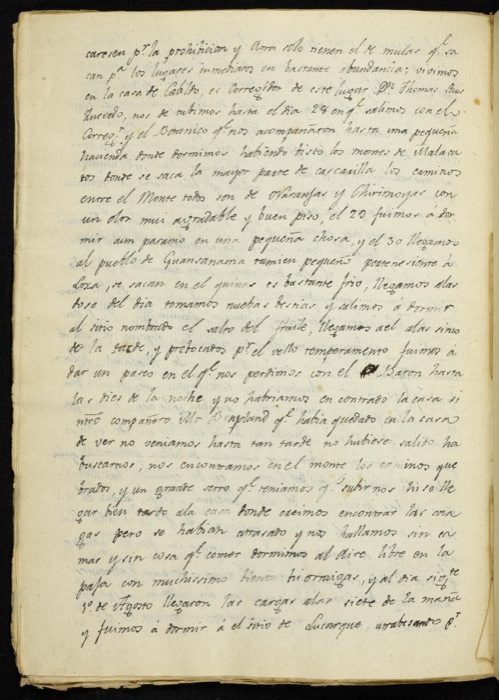 caresen pr. la prohibicion y Aora solo tienen el de mulas q.e sa
can p.a los lugares inmediatos en bastante abundancia; vivimos
en la casa de Cabildo, es Corregidor de este lugar Dn. Thomas Ruis
Quevedo, nos de tubimos hasta el dia 28 en q.e salimos con el
Correg.r y el Botanico q.e nos acompañaron hasta una pequeña
havienda donde dormimos habiendo bisto los montes de Malaca
tos donde se saca la mayor parte de cascarilla los caminos
entre el Monte todos son de Naranjas y Chirimoyas con
un olor mui agradable y buen piso, el 29 fuimos á dor
mir aun paramo en una pequeña chosa, y el 30 llegamos
al pueblo de Guansanama tamien pequeño perteneciente á
Loxa, se sacan en el quinas es bastante frio, llegamos alas
dose del dia tomamos nuebas bestias y salimos á dormir
al sitio nombrado el salto del fraile, llegamos ael alas sinco
de la tarde, y probocados pr. el vello temperamento fuimos á
dar un paseo en el q.e nos perdimos con el Baron hasta
las dies de la noche y no habriamos en contrado la casa si
ntro compañero Mr Bonpland q.e habia quedado en la casa
de ver no veniamos hasta tan tarde no hubiese salito ha
buscarnos, nos encontramos en el monte los caminos que
brados, y un grande serro q.e teniamos q.e subir nos hiso lle
gar bien tarde ala casa donde creimos encontrar las car
gas pero se habian atrasado y nos hallamos sin ca
mas y sin cosa q.e comer dormimos al aire libre en la
paja con muchissimo hormigas, y al dia sig.te
1.º de Agosto llegaron las cargas alas siete de la maña
y fuimos á dormir á el sitio de Lucarque, atrabesando p.r